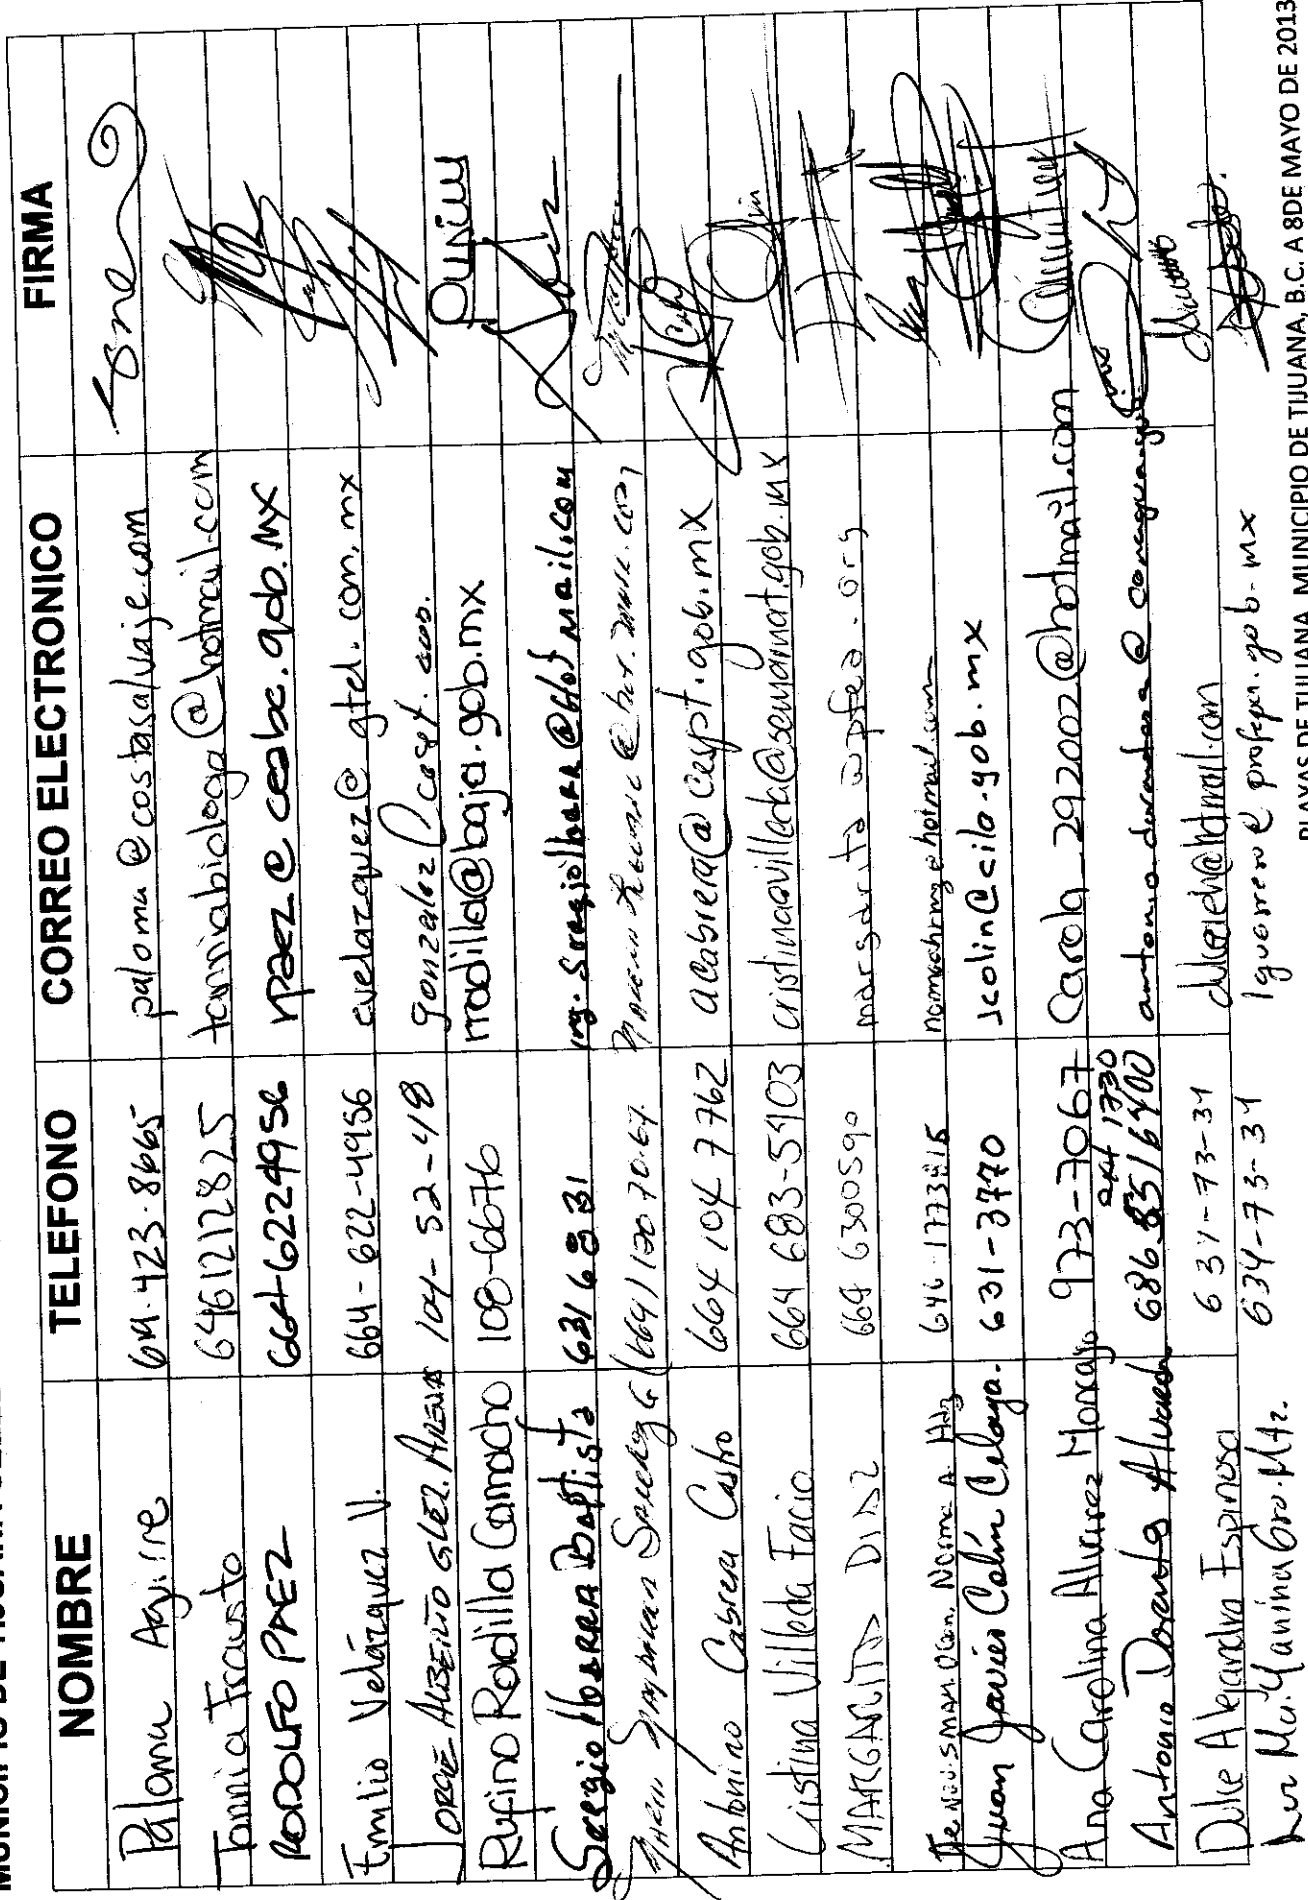 NOMBRE TELEFONO CORREO ELECTRONICO FIRMA
Paloma Aguirre 619-423-8665 paloma@costasalvaje.com
Tannia Frausto 6461212825 tanniabiologa@hotmail.com
RODOLFO PAEZ 664-6224956 rpaez@ceabc.gob.mx
Emilio Velázquez V. 664-622-4956 evelazquez@gtel.com.mx
JORGE ALBERTO GLEZ. ARENAS 104-52-48
Rufino Rodilla Camacho 108-6676 rrodilla@baja.gob.mx
Sergio Ibarra Baptista 631 6831
(664) 120 70.64.
Antonino Cabrera Castro 664 104 7762 acabrera@cespt.gob.mx
Cristina Villeda Facio 664 683-5903 cristinavilleda@semarnat.gob.mx
MARGARITA DIAZ 664 630590
646-1773815
Juan Javier Colín Celaya. 631-3770 jcolin@cila.gob.mx
Ana Carolina Alvirez Moncayo 973-7067 Carola_292002@hotmail.com
Antonio 686 8516400 ext 1330
Dulce Alejandra Espinosa 634-73-34
Luz Ma. Yanina Gro. Mtz. 634-73-34 lguerrero@profepa.gob.mx
PLAYAS DE TIJUANA, MUNICIPIO DE TIJUANA, B.C. A 8DE MAYO DE 2013